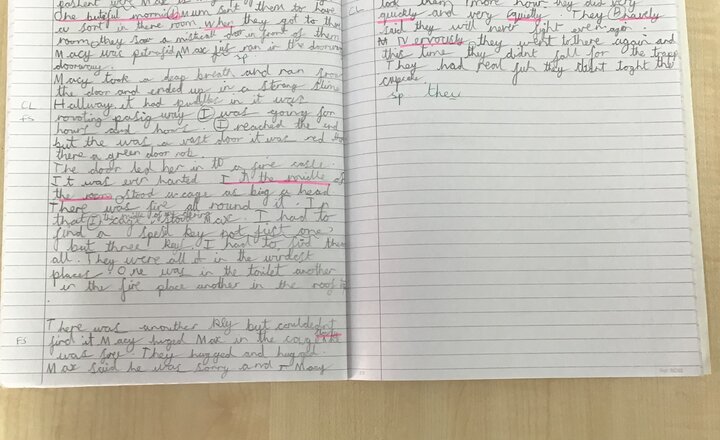 One hateful morning mum sent them to have
a sort in there room when they got to there
room they saw a mistical door in front of them
Macy was petrofid Max just ran in the
doorway.
Macy took a deap breath and ran
the door and ended up in a strang
CL Hallway it had puddles in it was
FS pasig way I was going for
hours and hours. I reached the end
but the was a vast door it was red
there a green door
The door led her in to a fire
It was ever hanted In the midle of
the room stood a cage as big a head
There was fire all round it. In
that stood Max. I had to
find a key not just one,
but three key. I had to find them
all. They were all in the wirdest
places. One was in the toilet another
in the fire place another in the roof
There was anouther key but couldednt
FS find it Macy huged Max in the
was They hugged and hugged
Max said he was sorry and Macy
CL look them 1 more hour they did very
quickly and very quietly. They bravely
said they will never fight ever again.
Nervously they went there again and
this time they didnt fall for the trap
They had real fun they didnt the
cupcake
sp they